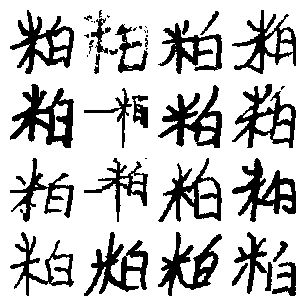 粕 粕 粕 粕
粕 粕 粕 粕
粕 粕 粕 粕
粕 粕 粕 粕